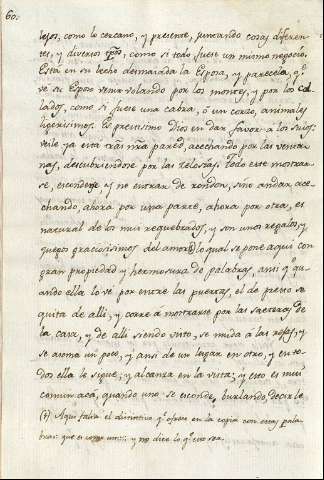 60.
lejos, como lo cercano, y presente, juntando cosas diferen-
tes, y diversos tpõs, como si todo fuese un mismo negocio.
Esta en su lecho desmaiada la Esposa, y parecela, q.e
ve su Esposo venir volando por los montes, y por los col-
lados, como si fuese una cabra, ó un corzo, animales
ligerisimos. Es prestisimo Dios en dar favor á los suios.
veile ya esta tras nra pared, acechando por las venta-
nas, descubriendose por las celosias. Todo este mostrar-
se, esconderse, y no entrar de rondon, sino andar ace-
chando, ahora por una parte, ahora por otra, es
natural de los mui requebrados, y son unos regalos, y
juegos graciosisimos del amor lo qual se pone aqui con
gran propiedad y hermosura de palabras, ansi q.e qu-
ando ella lo ve por entre las puertas, el de presto se
quita de alli, y corre á mostrarse por las saeteras de
la casa, y de alli siendo visto, se muda á las rejas, y
se asoma un poco, y ansi de un lugar en otro, y en to-
dos ella le sigue, y alcanza en la vista; y esto es mui
comun acá, quando uno se esconde, burlando, decirle
Aqui falta el q.e ofrece en la copia con estas pala-
bras: que es como y no dice lo q.e esto sea.